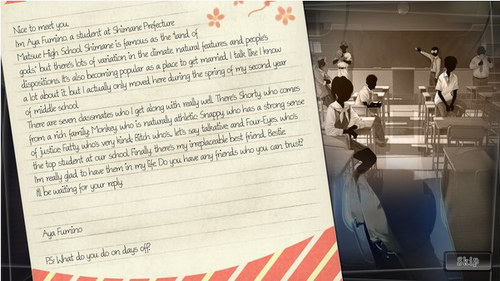 Nice to meet you.
I'm Aya Fumino, a student at Shimane Prefecture
Matsue High School. Shimane is famous as the "land of
gods," but there's lots of variation in the climate, natural features, and people's
dispositions. It's also becoming popular as a place to get married. I talk like I know
a lot about it, but I actually only moved here during the spring of my second year
of middle school.
There are seven classmates who I get along with really well. There's Shorty who comes
from a rich family, Monkey who is naturally athletic, Snappy who has a strong sense
of justice, Fatty who's very kind, Bitch who's... let's say talkative, and Four-Eyes who's
the top student at our school. Finally, there's my irreplaceable best friend, Bestie.
I'm really glad to have them in my life. Do you have any friends who you can trust?
I'll be waiting for your reply.
Aya Fumino
P.S. What do you do on days off?
Skip